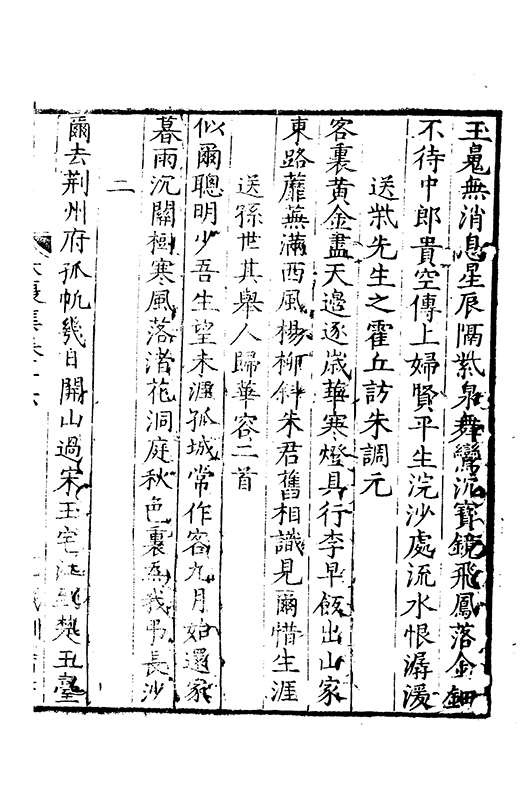 玉鳬無消息星辰隔紫泉舞鸞沉寳鏡飛鳳落金鈿
不待中郎貴空傳上婦賢平生浣沙處流水恨潺湲
送柴先生之霍丘訪朱調元
客裏黄金盡天邉逐歳華寒燈具行李早飯出山家
東路蘼蕪滿西風楊柳斜朱君舊相識見爾惜生涯
送孫世其舉人歸華容二首
似爾聰明少吾生望未涯孤城常作客九月始還家
暮雨沉關樹寒風落渚花洞庭秋色裏爲我弔長沙
二
爾去荆州府孤帆幾日開山過宋玉宅江到楚王臺